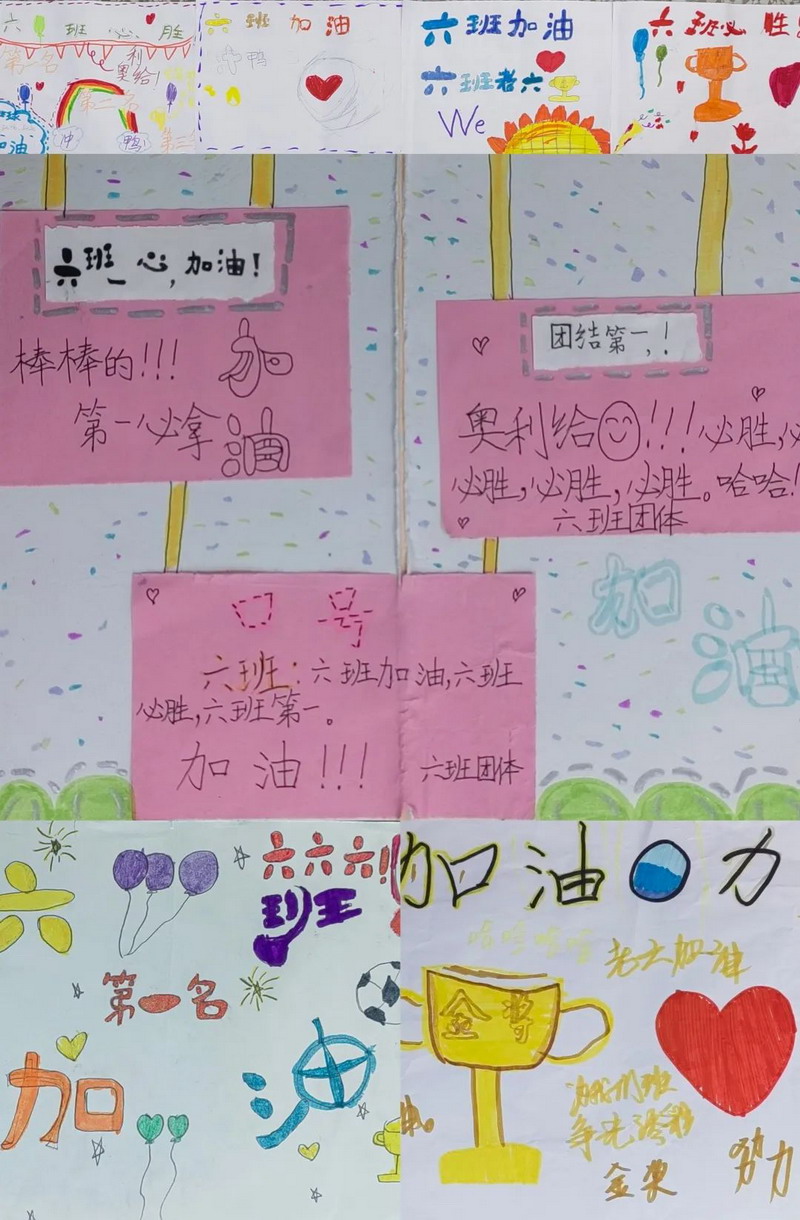 六班必胜
第一名
利
奥给!
第二名
冲
鸭!
加油
六班加油
冲鸭
六班加油
六班老六
We
六班必胜!
六班一心,加油!
棒棒的!!!
加油
第一必拿
团结第一,!
奥利给!!!必胜,必
必胜,必胜,必胜。哈哈!
六班团体
加油
口号
六班:六班加油,六班
必胜,六班第一。
加油!!!
六班团体
六
六六六!
班
第一名
加油
加油
力
哈哈哈哈
老六加油
金奖
争先
金奖
努力